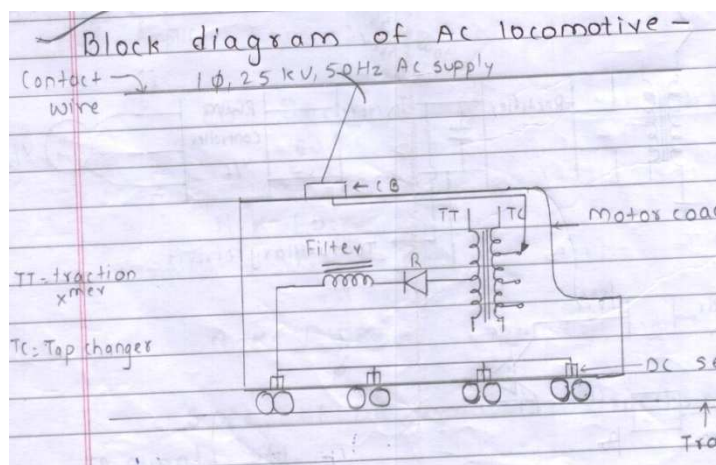 Block diagram of Ac locomotive -
Contact wire
1ϕ, 25 kv, 50Hz Ac supply
← CB
TT
TC
Motor coac
Filter
R
TT = traction
xmer
TC = Tap changer
DC se
Tra